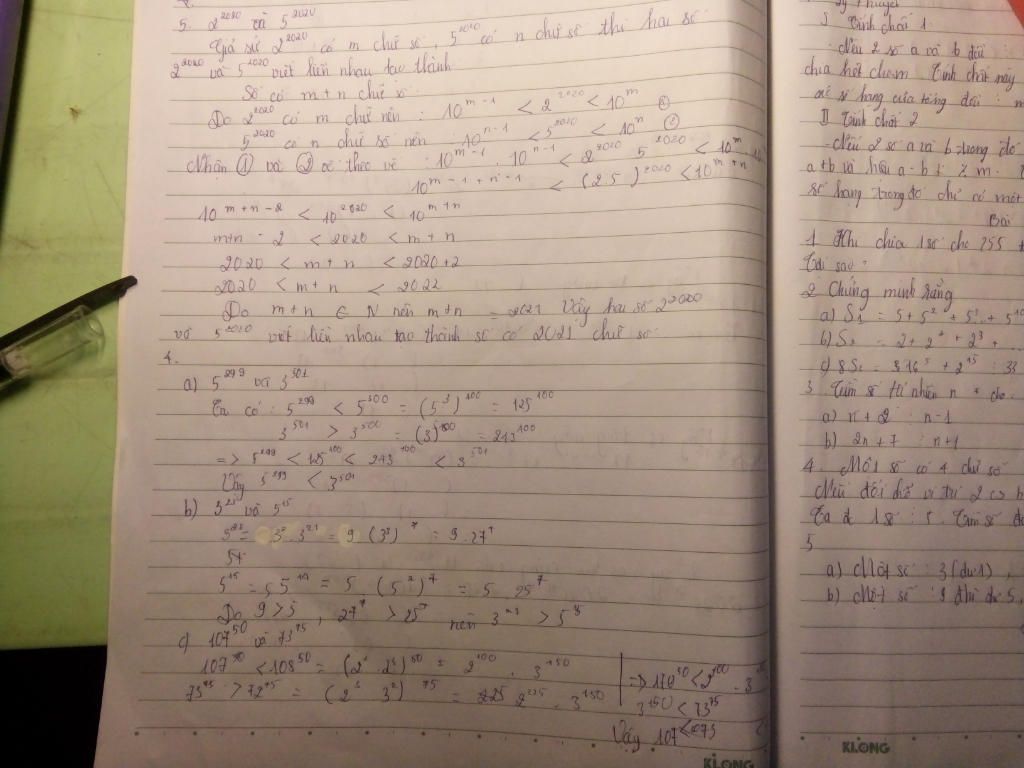 5. 2^2020 và 5^2020
Giả sử 2^2020 có m chữ số, 5^2020 có n chữ số thì hai số
2^2020 và 5^2020 viết liền nhau tạo thành
Số có m+n chữ số
Do 2^2020 có m chữ nên : 10^m-1 < 2^2020 < 10^m ①
5^2020 có n chữ số nên : 10^n-1 < 5^2020 < 10^n ②
Nhân ① và ② vế theo vế : 10^m-1 . 10^n-1 < 2^2020 5^2020 < 10^m
10^m-1+n-1 < (2 5)^2020 < 10^m+n
10^m+n-2 < 10^2020 < 10^m+n
m+n - 2 < 2020 < m+n
2020 < m+n < 2020+2
2020 < m+n < 2022
Do m+n ∈ N nên m+n = 2021 Vậy hai số 2^2020
và 5^2020 viết liền nhau tạo thành số có 2021 chữ số
4.
a) 5^299 và 3^501
Ta có : 5^299 < 5^300 = (5^3)^100 = 125^100
3^501 > 3^500 = (3)^100 = 243^100
=> 5^299 < 125^100 < 243^100 < 3^501
Vậy 5^299 < 3^501
b) 3^23 và 5^15
= 3^2 3^21 = 9 (3^3)^7 = 9.27^7
5^15 = 5 5^14 = 5 (5^2)^7 = 5 25^7
Do 9 > 5 , 27^7 > 25^7 nên 3^23 > 5
c) 107^50 và 73^75
107^50 < 108^50 = (2^2 3^3)^50 = 2^100 . 3^150
73^75 > 72^75 = (2^3 3^2)^75 = 2^225 . 3^150
=> < 2^100 . 3
3^150 < 73^75
Vậy 107 < 73
KLONG
lý thuyết
I Tính chất 1
Nếu 2 số a và b đều :
chia hết cho m Tính chất này
số hạng của tổng đều : m
II Tính chất 2
- Nếu 2 số a và b trong đó
a+b và hiệu a-b
số hạng trong đó chỉ có một
Bài
1 Khi chia 1 số cho 255
Tại sao
2 Chứng minh rằng
a) S1 = 5 + 5^2 + 5^3 + 5
b) S2 = 2 + 2^2 + 2^3 +
= + 2^15 : 33
3 Tìm số tự nhiên n
a) n + 2 : n-1
b) 2n + 7 : n+1
4. Một số có 4 chữ số
Nếu đổi chỗ vị trí 2
Ta 1 số : 5. Tìm số đó
5
a) Một số : 3 (dư 1),
b) Một số : 9 thì dư 5,
KLONG